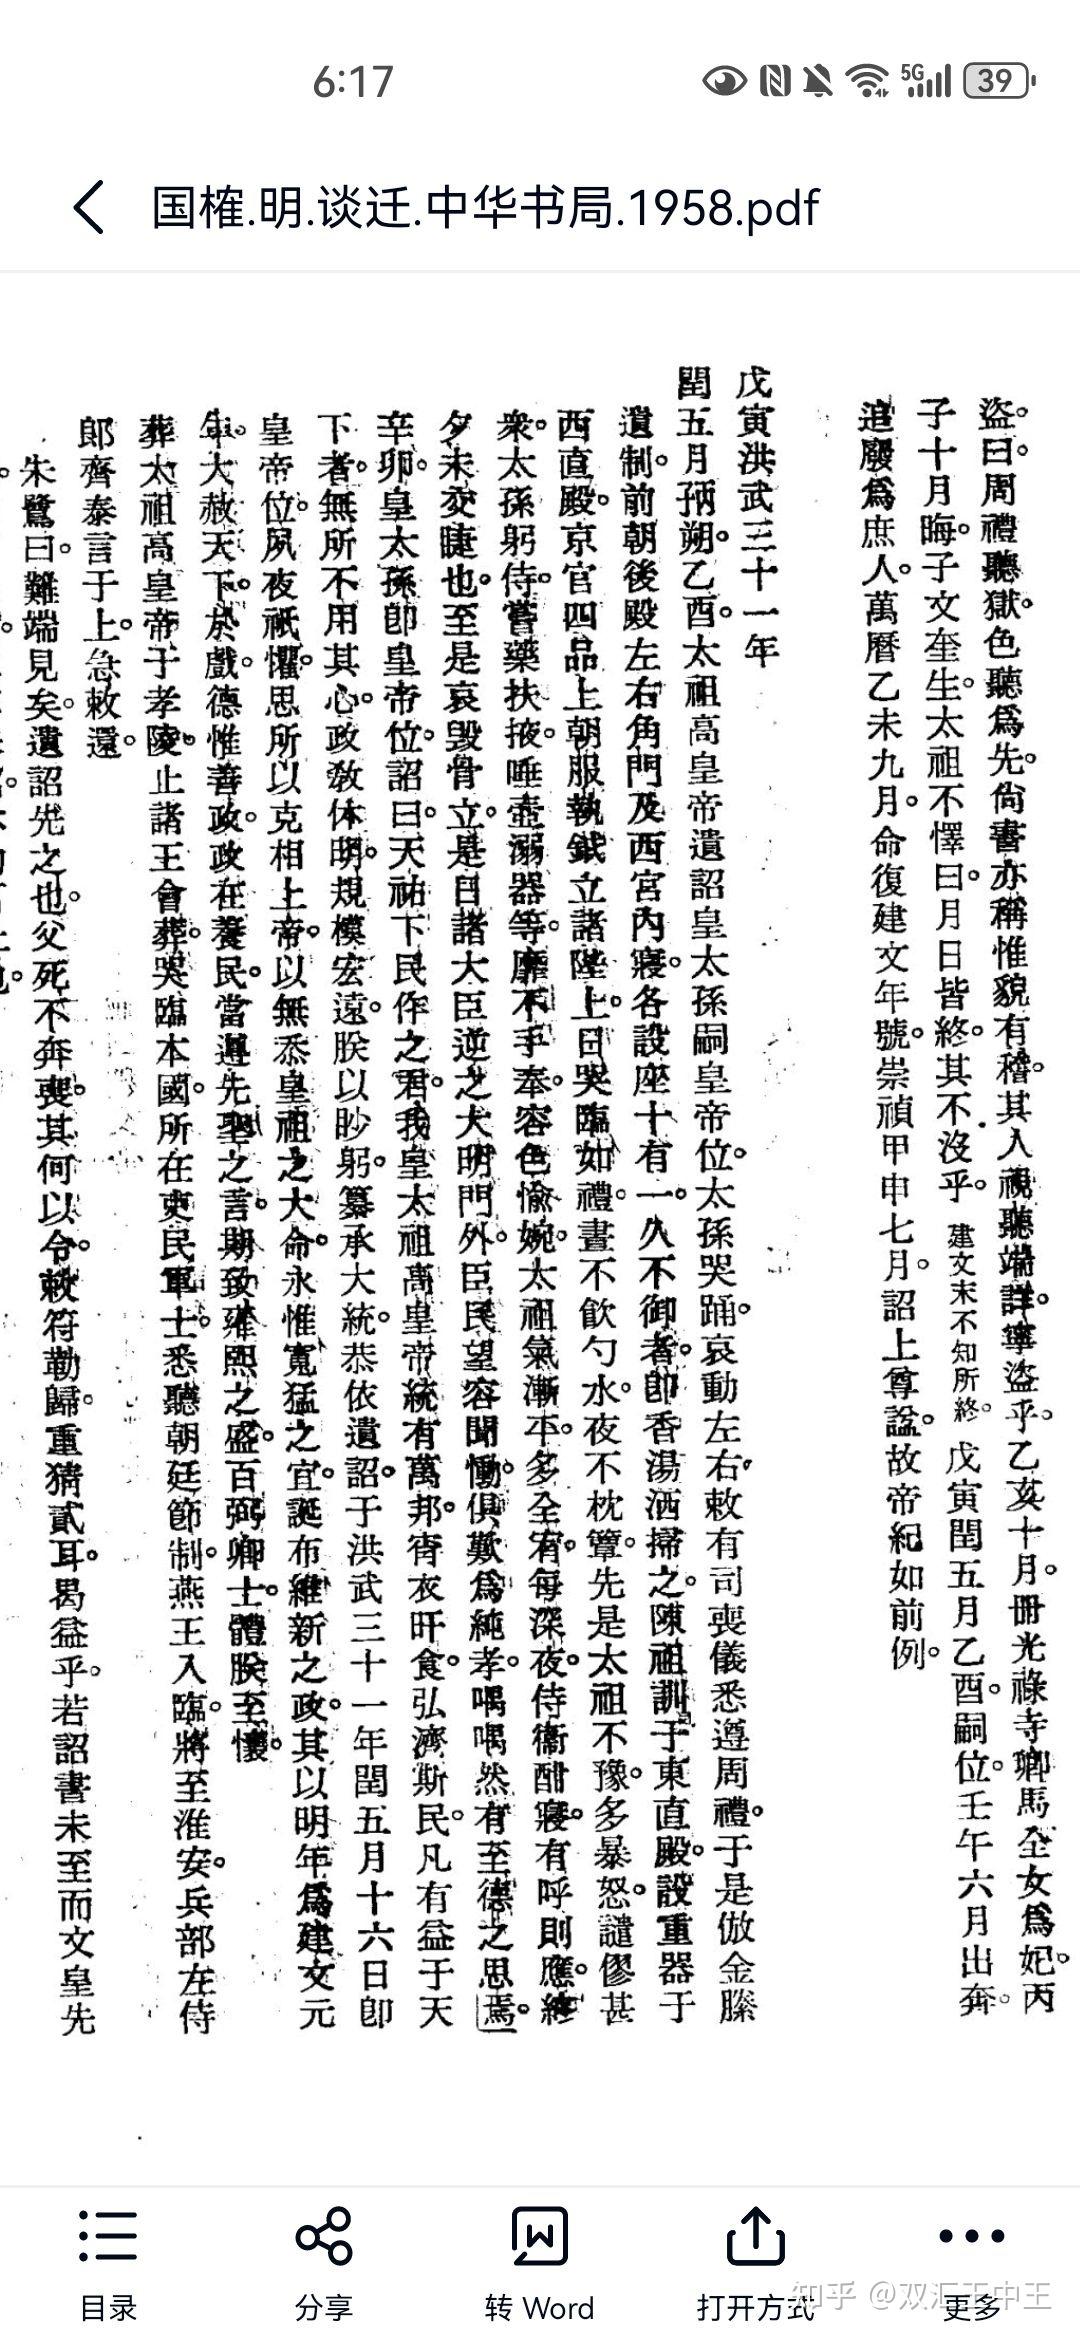 6:17
5G
39
国榷.明.谈迁.中华书局.1958.pdf
盜。曰。周禮聽獄。色聽爲先。尙書亦稱惟貌有稽。其人視聽端詳。寧盜乎。乙亥十月。冊光祿寺卿馬全女爲妃。丙
子十月晦。子文奎生。太祖不懌曰。月日皆終。其不沒乎。建文末不知所終。戊寅閏五月乙酉。嗣位。壬午六月出奔。
追廢爲庶人。萬曆乙未九月。命復建文年號。崇禎甲申七月。詔上尊謚。故帝紀如前例。
戊寅洪武三十一年
閏五月朔。乙酉。太祖高皇帝遺詔皇太孫嗣皇帝位。太孫哭踊。哀動左右。敕有司喪儀悉遵周禮。于是倣金縢
遺制。前朝後殿左右角門及西宮內寢。各設座十有一。久不御者。卽香湯洒掃之。陳祖訓于東直殿。設重器于
西直殿。京官四品上朝服執鉞立諸陛上。日哭臨如禮。晝不飮勺水。夜不枕簟。先是太祖不豫。多暴怒。譴僇甚
衆。太孫躬侍。嘗藥扶掖。唾壺溺器等。靡不手奉。容色愉婉。太祖氣漸平。多全宥。每深夜。侍衞酣寢。有呼則應。終
夕未交睫也。至是哀毁骨立。是日諸大臣逆之大明門外。臣民望容聞慟。俱歎爲純孝。喁喁然有至德之思焉。
辛卯。皇太孫卽皇帝位。詔曰。天祐下民。作之君。我皇太祖高皇帝統有萬邦。宵衣旰食。弘濟斯民。凡有益于天
下者。無所不用其心。政敎休明。規模宏遠。朕以眇躬。纂承大統。恭依遺詔。于洪武三十一年閏五月十六日卽
皇帝位。夙夜祇懼。思所以克相上帝。以無忝皇祖之大命。永惟寬猛之宜。誕布維新之政。其以明年爲建文元
年。大赦天下。於戲。德惟善政。政在養民。當遵先聖之言。期致雍熙之盛。百弼卿士。體朕至懷。
葬太祖高皇帝于孝陵。止諸王會葬。哭臨本國。所在吏民軍士。悉聽朝廷節制。燕王入臨。將至淮安。兵部左侍
郞齊泰言于上。急敕還。
朱鷺曰。難端見矣。遺詔先之也。父死不奔喪。其何以令。敕符勒歸。重猜貳耳。曷益乎。若詔書未至而文皇先
目录
分享
转 Word
打开方式
更多
知乎 @双汇王中王